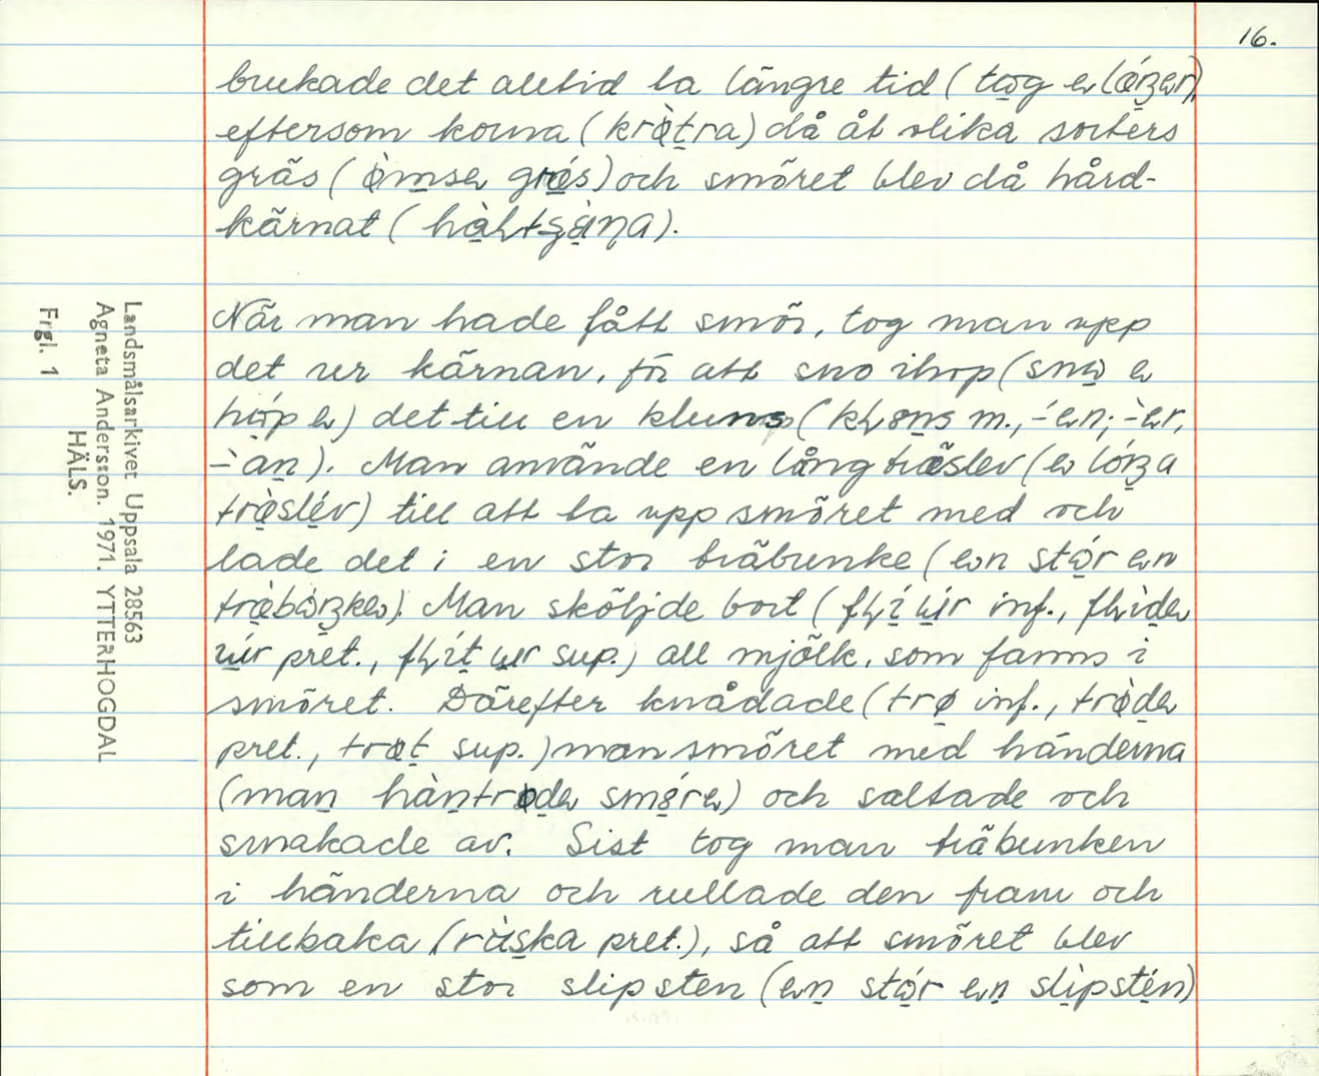 16.
brukade det alltid ta längre tid ( tωg ɷ lǿŋɷr),
eftersom korna ( krø̀tra) då åt olika sorters
gräs ( ø̀msɷ grǽs) och smöret blev då hård-
kärnat ( hàɭtʂæ̀ɳa).
När man hade fått smör, tog man upp
det ur kärnan, för att sno ihop (snω ɷ
hώp ɷ) det till en kluns ( kɭɵns m., -́ɷn; -̀ɷr,
-̀an). Man använde en lång träslev (ɷ lóŋa
træ̀slév) till att ta upp smöret med och
lade det i en stor träbunke ( ɷn stώr ɷn
træ̀bὼŋkɷ). Man sköljde bort ( fɭí úr inf., fɭìdɷ
úr pret., fɭít ur sup.) all mjölk, som fanns i
smöret. Därefter knådade ( trø inf., trø̀dɷ
pret., trøt sup.) man smöret med händerna
(man hàntrødɷ smɵ́rɷ) och saltade och
smakade av. Sist tog man träbunken
i händerna och rullade den fram och
tillbaka (rùska pret.), så att smöret blev
som en stor slipsten (ɷn stώr ɷn slìpstén)
Landsmålsarkivet Uppsala 28563
Agneta Andersson. 1971. YTTERHOGDAL
HÄLS.
Frgl. 1